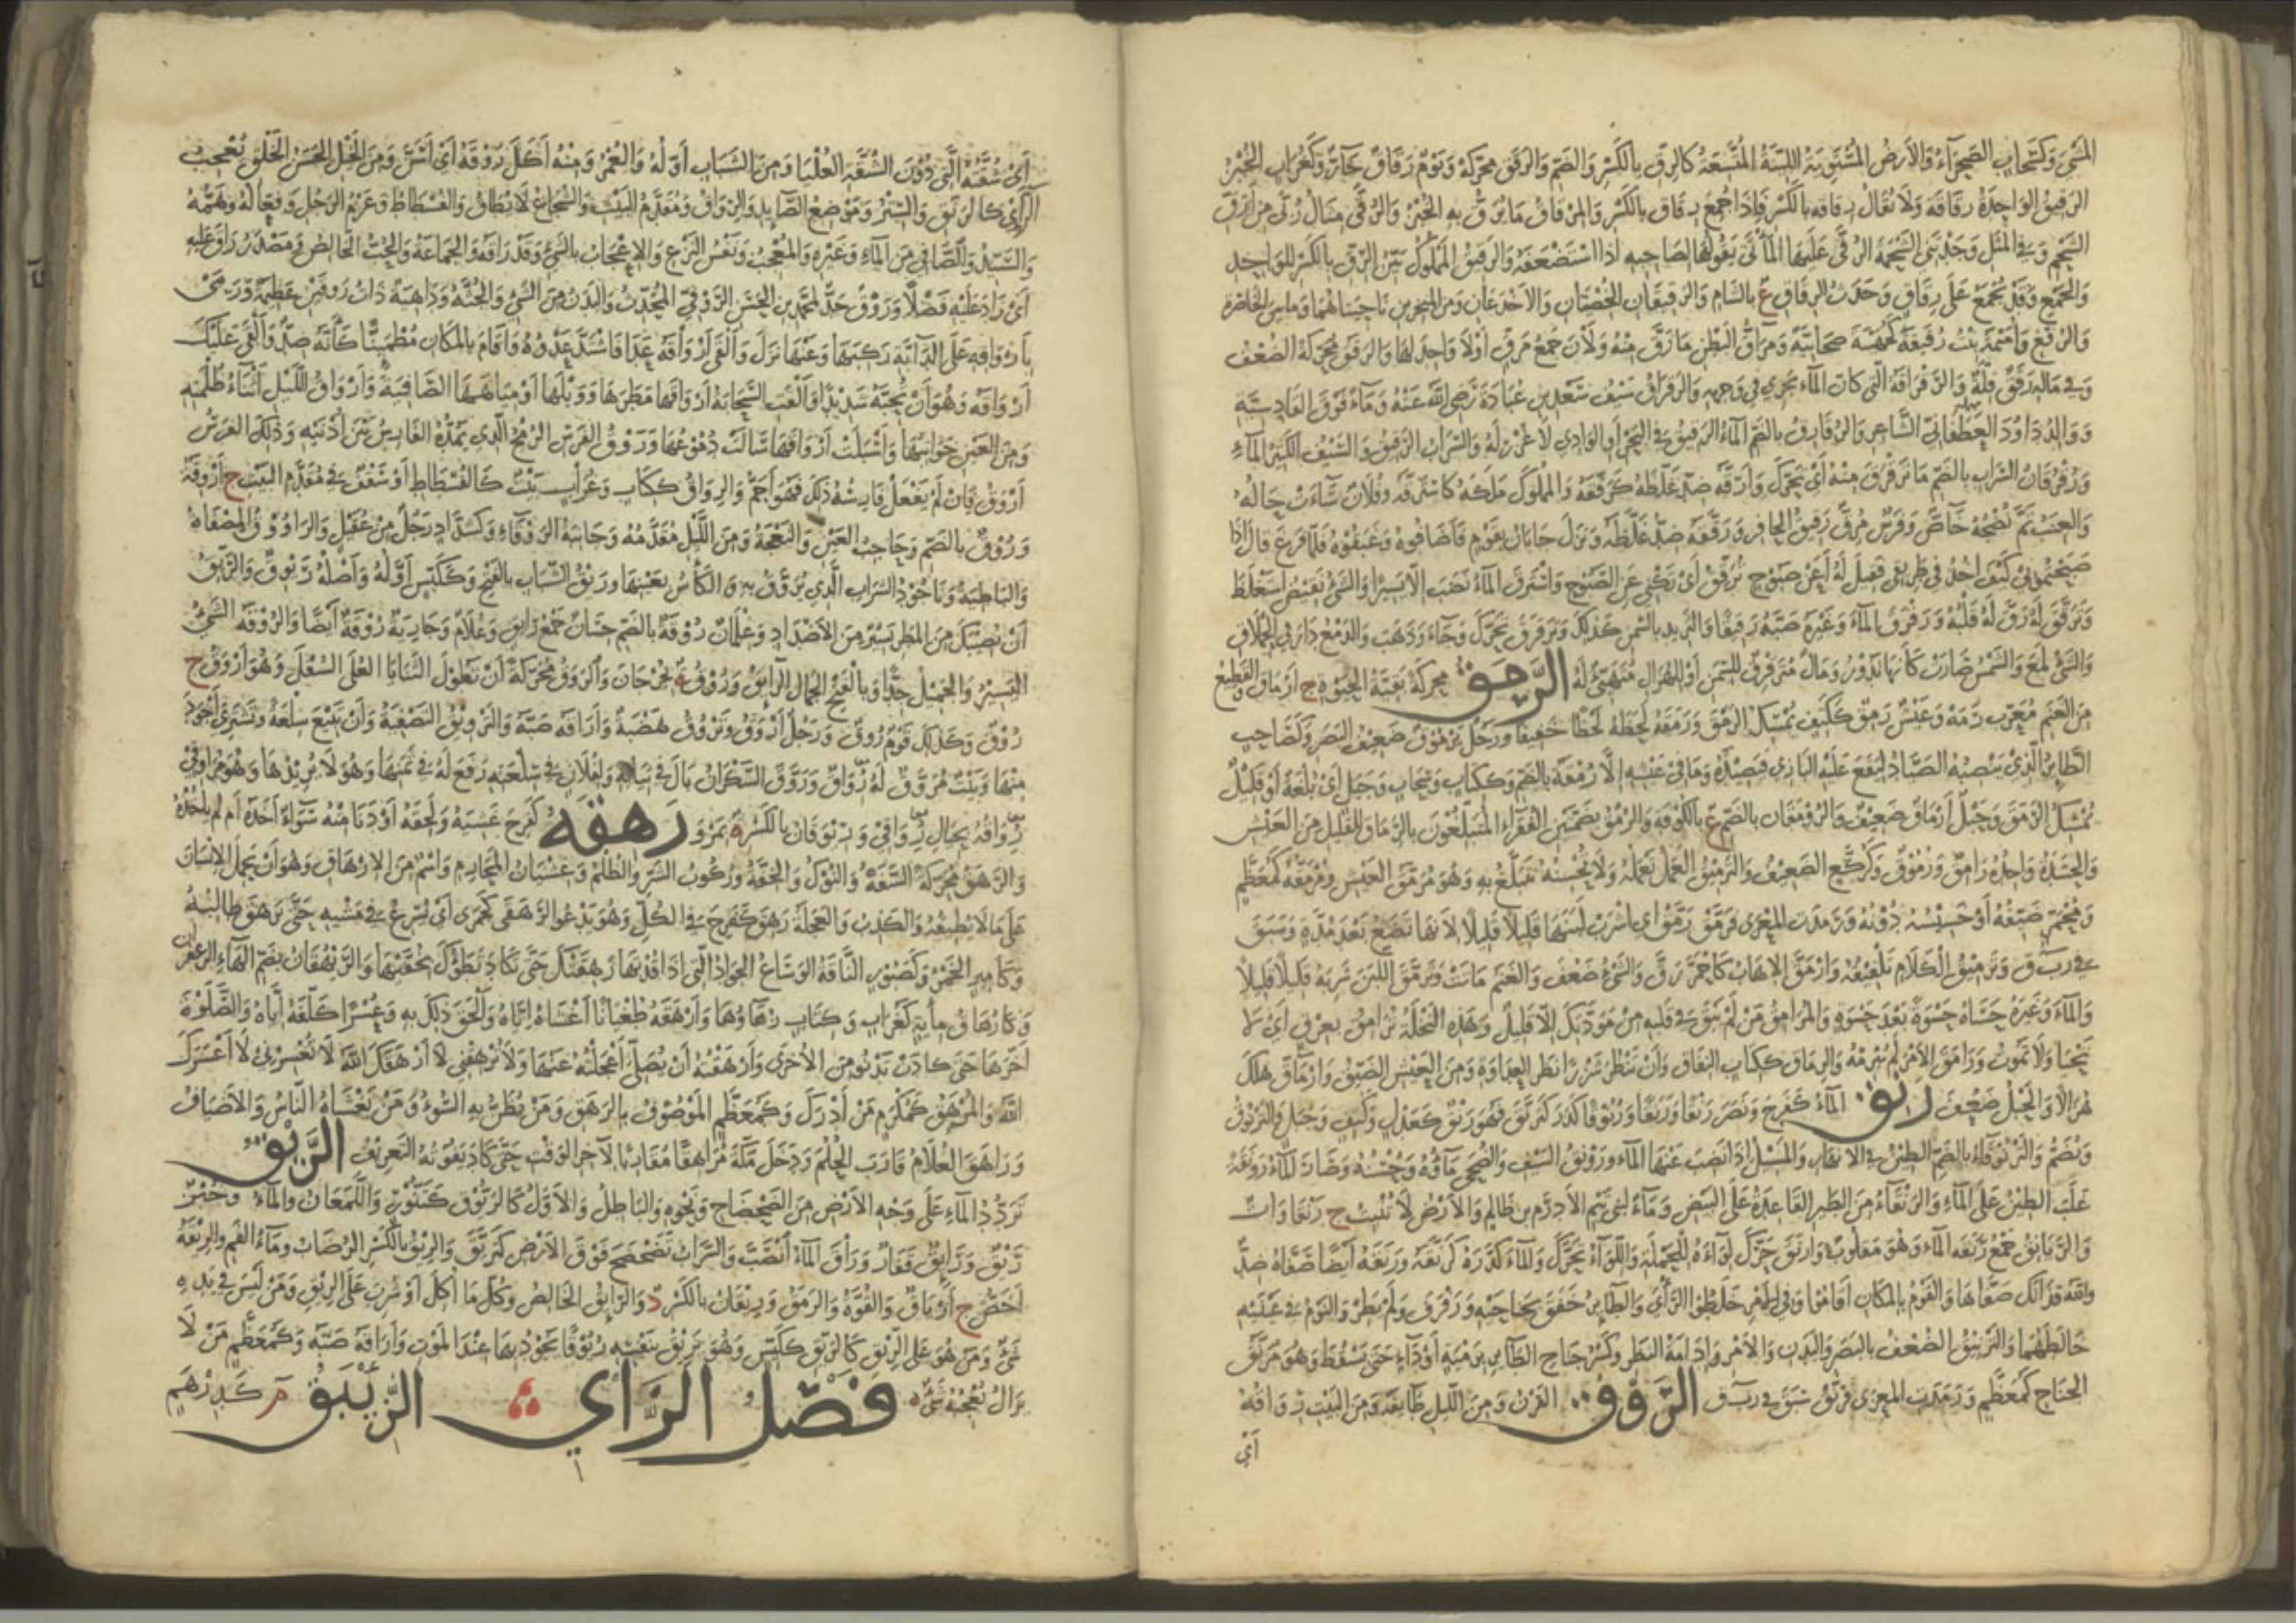 المشي وكسحاب الصحراء والأرض المستوية اللينة المتسعة كالرق بالكسر والضم والرقق محركة ويوم رقاق حار وكغراب الخبز
الرقيق الواحدة رقاقة ولا يقال رقاقة بالكسر فإذا جمع رقاق بالكسر والمرقاق ما يرق به الخبز والرقى مثال ربى من أرق
الشحم وفي المثل وجدتني الشحمة الرقى عليها المأتى يقولها لصاحبه إذا استضعفه والرقيق المملوك بين الرق بالكسر للواحد
والجمع وقد يجمع على رقاق وحدث الرقاق ع بالشام والرقيقان الحضنان والأخدعان ومن المنخرين ناحيتاهما وما بين الخاصرة
والرفغ وأميمة بنت رقيقة كجهينة صحابية ومراق البطن ما رق منه ولان جمع مرق أو لا واحد لها والرقق محركة الضعف
وفي ماله رقق قلة والرقراقة التي كان الماء يجري في وجهها والرقراق سيف سعد بن عبادة رضي الله عنه وماء فوق القادسية
ووالد داود الغطفاني الشاعر والرقارق بالضم الماء الرقيق في البحر أو الوادي لا غزر له والشراب الرقيق والسيف الكثير الماء
ورقرقان السراب بالضم ما ترقرق منه أي تحرك وأرقه ضد غلظه كرققه والمملوك ملكه كاسترقه وفلان ساءت حاله
والعنب تم نضجه خاص وفرس مرق رقيق الحافر ورققه ضد غلظه ونزل جابان بقوم فأضافوه وغبقوه فلما فرغ قال إذا
صبحتموني كيف آخذ في طريقي فقيل له أعن صبوح ترقق أي تكني عن الصبوح واسترق الماء نضب إلا يسيرا والشيء نقيض استغلظ
وترقق له رق له قلبه ورقرق الماء وغيره صبه رقيقا والثريد بالسمن كذلك وترقرق تحرك وجاء وذهب والدمع دار في الحملاق
والشيء لمع والشمس صارت كأنها تدور ومال مترقرق للسمن أو للهزال متهيئ له الرمق محركة بقية الحيوة ج أرماق والقطيع
من الغنم معرب رمه وعيش رمق ككتف يمسك الرمق ورمقه لحظه لحظا خفيفا ورجل يرموق ضعيف البصر وكصاحب
الطائر الذي ينصبه الصياد ليقع عليه البازي فيصيده وما في عيشه إلا رمقة بالضم وككتاب وسحاب وجبل أي بلغة أو قليل
يمسك الرمق وحبل أرماق ضعيف والرومقان بالضم ع بالكوفة والرمق بضمتين الفقراء المتبلغون بالرماق للقليل من العيش
والحسدة واحده رامق ورموق وكركع الضعيف والترميق العمل يعمله ولا يحسنه يتبلغ به وهو مرمق العيش ومرمقه كمعظم
ومحمر ضيقه أو خسيسه دونه ورمدت المعزى فرمق رمق أي اشرب لبنها قليلا قليلا لأنها تضع بعد مدة وسبق
في ربق وترميق الكلام تلفيقه وارمق الإهاب كاحمر رق والشيء ضعف والغنم ماتت وترمق اللبن شربه قليلا قليلا
والماء وغيره حساه حسوة بعد حسوة والمرامق من لم يبق في قلبه من مودتك إلا قليل وهذه النخلة ترامق بعرق أي لا
تحيا ولا تموت ورامق الأمر لم يبرمه والرماق ككتاب النفاق وأن تنظر شزرا نظر العداوة ومن العيش الضيق وارماق هلك
هزالا والحبل ضعف رنق الماء كفرح ونصر رنقا ورنقا ورنوقا كدر كترنق فهو رنق كعدل وكتف وجبل والترنوق
ويضم والترنوقاء بالضم الطين في الأنهار والمسيل إذا نضب عنها الماء ورونق السيف والضحى ماؤه وحسنه وصار الماء رونقة
غلب الطين على الماء والرنقاء من الطير القاعدة على البيض وماء لبني تيم الأدرم بن ظالم والأرض لا تنبت ج رنقاوات
والرنانق جمع رنقة الماء وهو مقلوب وأرنق حرك لواءه للحملة واللواء تحرك والماء كدره كرنقه ورنقه أيضا صفاه ضد
والله قذاتك صفاها والقوم بالمكان أقاموا وفي الأمر خلطوا الرأي والطائر خفق بجناحيه ورفرف ولم يطر والنوم في عينيه
خالطهما والترنيق الضعف بالبصر والبدن والأمر وإدامة النظر وكسر جناح الطائر برمية أو داء حتى يسقط وهو مرنق
الجناح كمعظم ورمدت المعزى فرنق سبق في ربق الروق القرن ومن الليل طائفة ومن البيت رواقه
أي
أي شقته التي دون الشقة العليا ومن الشباب أوله والعمر ومنه أكل روقه أي أسن ومن الخيل الحسن الخلق يعجب
الرائي كالريق والستر وموضع الصائد والرواق ومقدم البيت والشجاع لا يطاق والفسطاط وعزم الرجل وفعاله وهمه
والسيد والصافي من الماء وغيره والمعجب ونفس النزع والإعجاب بالشيء وقد راقه والجماعة والحب الخالص ومصدر راق عليه
أي زاد عليه فضلا وروق جد لمحمد بن الحسن الروقي المحدث والبدن من الشيء والجثة وداهية ذات روقين عظيمة ورمى
بأرواقه على الدابة ركبها وعنها نزل وألقى أرواقه عدا فاشتد عدوه وأقام بالمكان مطمئنا كأنه ضد وألقى عليك
أرواقه وهو أن تحبه شديدا وألقت السحابة أرواقها مطرها ووبلها أو مياهها الصافية وأرواق الليل أثناء ظلمته
ومن العين جوانبها وأسبلت أرواقها سالت دموعها وروق الفرس الرمح الذي يمده الفارس بين أذنيه وذلك الفرس
أروق فإن لم يفعل فارسه ذلك فهو أجم والرواق ككتاب وغراب بيت كالفسطاط أو سقف في مقدم البيت ج أروقة
وروق بالضم وحاجب العين والنعجة ومن الليل مقدمه وجانبه الروقاء وكشداد رجل من عقيل والراووق المصفاة
والباطية وناجود الشراب الذي يروق به والكأس بعينها وريق الشباب بالفتح وككيس أوله وأصله ريوق والريق
أن يصيبك من المطر يسير من الأضداد وغلمان روقة بالضم حسان جمع رائق وغلام وجارية روقة أيضا والروقة الشيء
اليسير والجميل جدا وبالفتح الجمال الرائق وروق ة بجرجان والروق محركة أن تطول الثنايا العلى السفلى وهو أروق ج
روق وكذلك قوم روق ورجل أروق وتروق هضبة وأراقه صبه والترويق التصفية وأن تبيع سلعة وتشتري أجود
منها وبيت مروق له رواق وروق السكران بال في ثيابه ولفلان في سلعته رفع له في ثمنها وهو لا يريدها وهو مراوقي
رواقه بحيال رواقي وريوقان بالكسر ة بمرو رهقه كفرح غشيه ولحقه أو دنا منه سواء أخذه أم لم يأخذه
والرهق محركة السفه والنوك والخفة وركوب الشر والظلم وغشيان المحارم واسم من الإرهاق وهو أن يحمل الإنسان
على ما لا يطيقه والكذب والعجلة رهق كفرح في الكل وهو يعدو الرهقى كجمزى أي يسرع في مشيه حتى يرهق طالبه
وكأمير الخمر وكصبور الناقة الوساع الجواد التي إذا قدتها رهقتك حتى تكاد تطؤك بخفيها والريهقان بضم الهاء الزعفران
وكان رهاق مائة كغراب وكتاب زهاؤها وأرهقه طغيانا أغشاه إياه وألحق ذلك به وعسرا كلفه إياه والصلوة
أخرها حتى كادت تدنو من الأخرى وأرهقته أن يصلي أعجلته عنها ولا ترهقني لا أرهقك الله لا تعسرني لا أعسرك
الله والمرهق كمكرم من أدرك وكمعظم الموصوف بالرهق ومن يظن به السوء ومن يغشاه الناس والأضياف
وراهق الغلام قارب الحلم ودخل مكة مراهقا مقاربا لآخر الوقت حتى كاد يفوته التعريف الريق
تردد الماء على وجه الأرض من الضحضاح ونحوه والباطل والأول كالريوق كتنور واللمعان والماء وخبز
ريق ورائق قفار وراق الماء انصب والسراب تضحضح فوق الأرض كتريق والريق بالكسر الرضاب وماء الفم والريقة
أخص ج أرياق والقوة والرمق وريقان بالكسر د والرائق الخالص وكل ما أكل أو شرب على الريق ومن ليس في يده
شيء ومن هو على الريق كالريق ككيس وهو يريق بنفسه ريوقا يجود بها عند الموت وأراقه صبه وكمعظم من لا
يزال يعجبه شيء فصل الزاي الزئبق م كدرهم